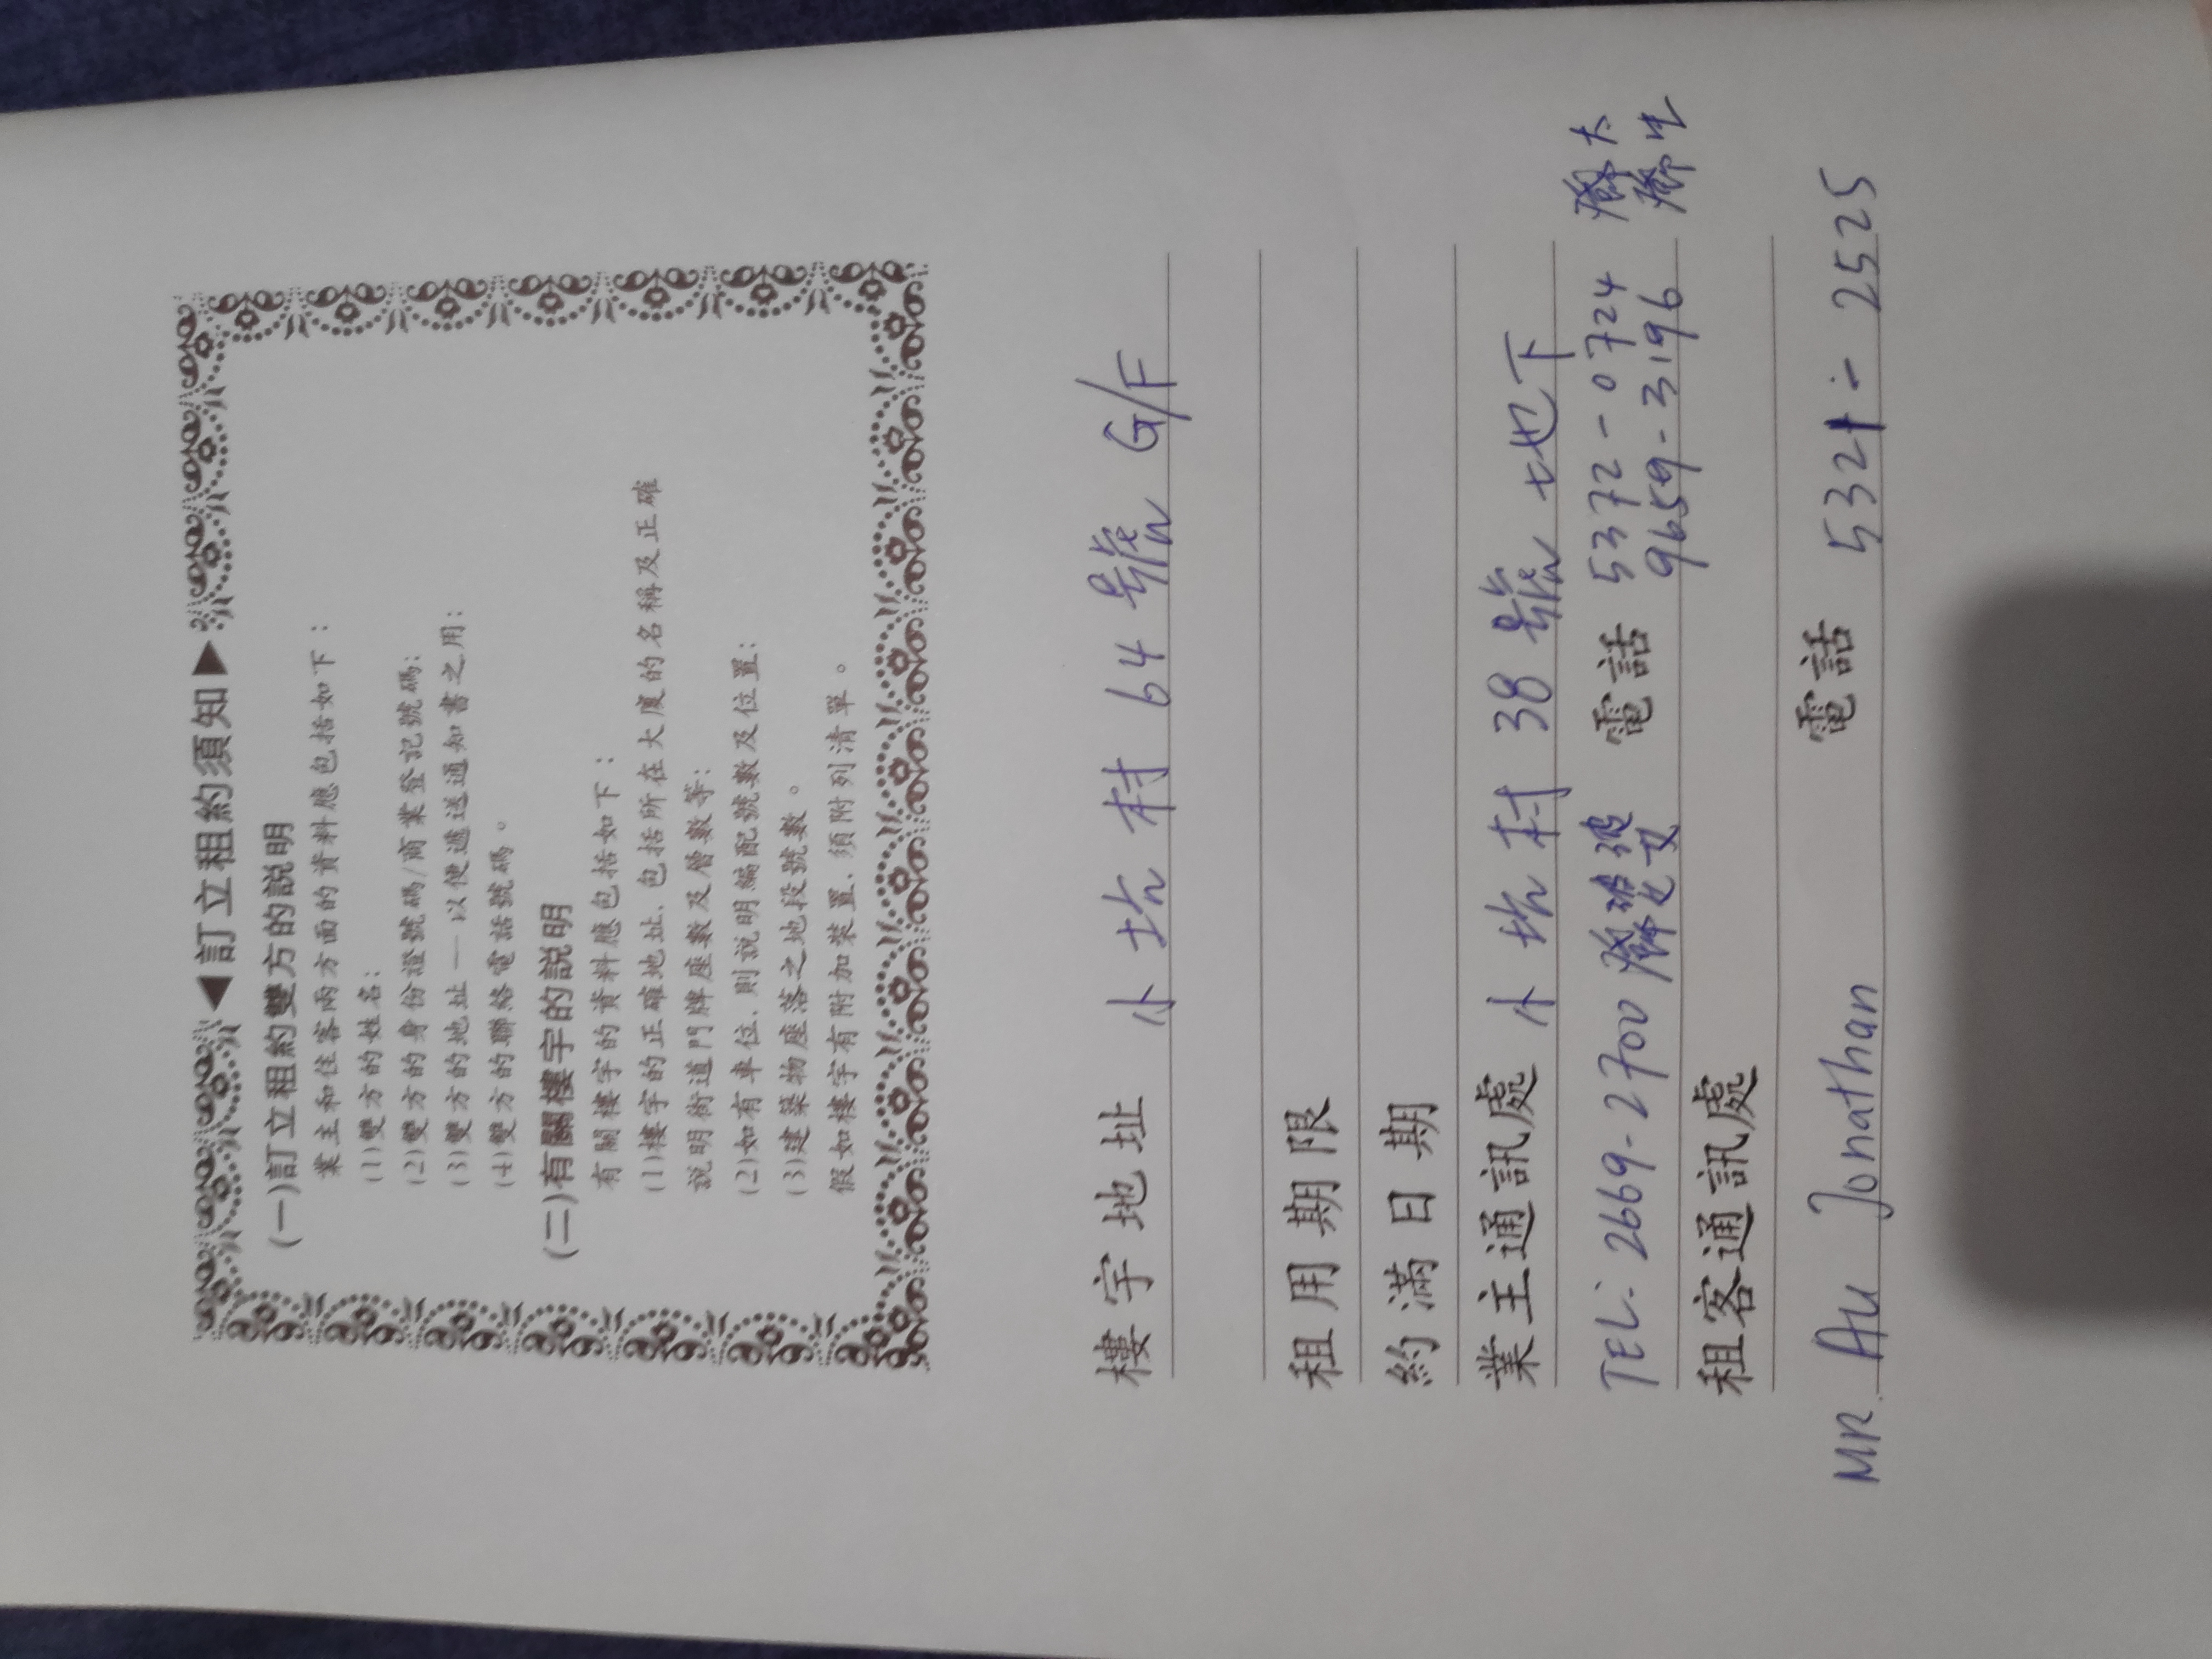 ◀訂立租約須知▶
(一)訂立租約雙方的説明
業主和住客兩方面的資料應包括如下：
(1)雙方的姓名；
(2)雙方的身份證號碼/商業登記號碼；
(3)雙方的地址——以便遞送通知書之用；
(4)雙方的聯絡電話號碼。
(二)有關樓宇的説明
有關樓宇的資料應包括如下：
(1)樓宇的正確地址，包括所在大廈的名稱及正確
説明街道門牌座數及層數等；
(2)如有車位，則説明編配號數及位置；
(3)建築物座落之地段號數。
假如樓宇有附加裝置，須附列清單。
樓宇地址 小坑村 64 號 G/F
租用期限
約滿日期
業主通訊處 小坑村 38 號 地下
TEL: 2669-2700 電話 5372-0724 太
9659-3196 生
租客通訊處
MR. Au Jonathan 電話 5321-2525